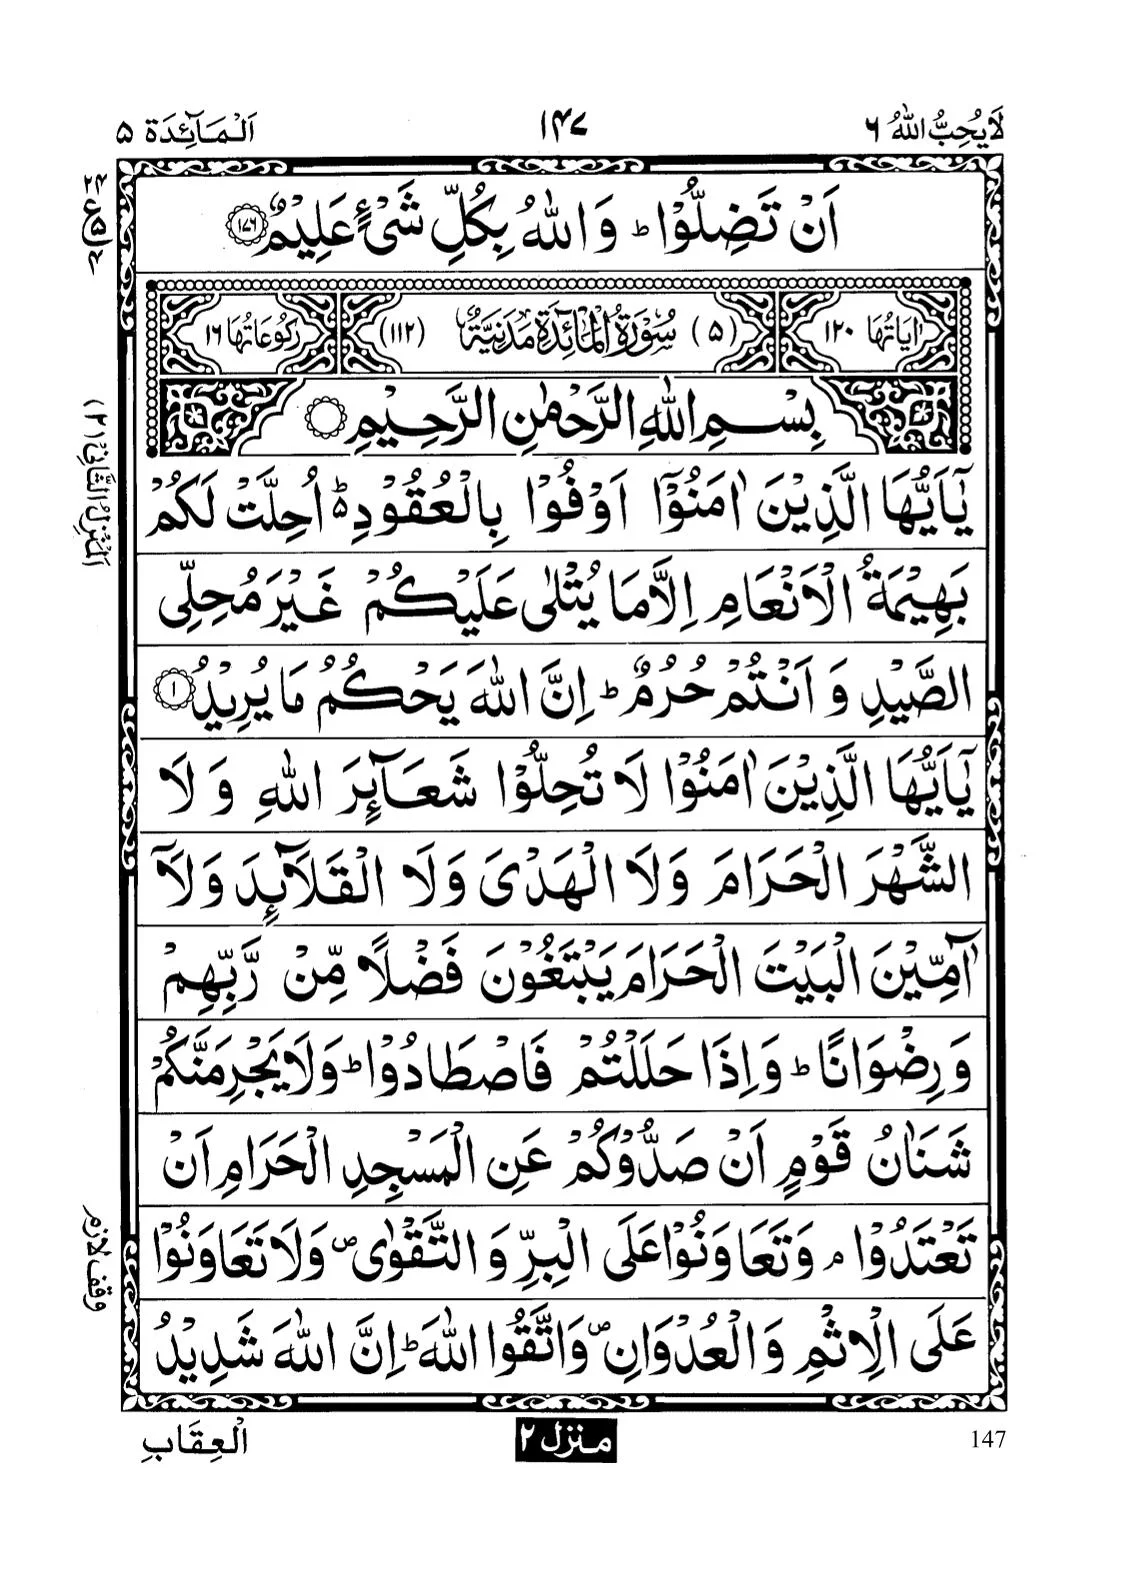 لَا يُحِبُّ اللهُ ٦
١٤٧
اَلْمَآئِدَة ٥
اَنْ تَضِلُّوْا ؕ وَ اللهُ بِكُلِّ شَیْءٍ عَلِیْمٌ ۟﴿۱۷۶﴾
اٰيَاتُهَا ١٢٠
(٥) سُوْرَةُ الْمَآئِدَةِ مَدَنِيَّةٌ (١١٢)
رُكُوْعَاتُهَا ١٦
بِسْمِ اللهِ الرَّحْمٰنِ الرَّحِیْمِ
یٰۤاَیُّهَا الَّذِیْنَ اٰمَنُوْۤا اَوْفُوْا بِالْعُقُوْدِ ؕ۬ اُحِلَّتْ لَكُمْ
بَهِیْمَةُ الْاَنْعَامِ اِلَّا مَا یُتْلٰی عَلَیْكُمْ غَیْرَ مُحِلِّی
الصَّیْدِ وَ اَنْتُمْ حُرُمٌ ؕ اِنَّ اللهَ یَحْكُمُ مَا یُرِیْدُ ﴿۱﴾
یٰۤاَیُّهَا الَّذِیْنَ اٰمَنُوْا لَا تُحِلُّوْا شَعَآئِرَ اللهِ وَ لَا
الشَّهْرَ الْحَرَامَ وَ لَا الْهَدْیَ وَ لَا الْقَلَآئِدَ وَ لَاۤ
آٰمِّیْنَ الْبَیْتَ الْحَرَامَ یَبْتَغُوْنَ فَضْلًا مِّنْ رَّبِّهِمْ
وَ رِضْوَانًا ؕ وَ اِذَا حَلَلْتُمْ فَاصْطَادُوْا ؕ وَ لَا یَجْرِمَنَّكُمْ
شَنَاٰنُ قَوْمٍ اَنْ صَدُّوْكُمْ عَنِ الْمَسْجِدِ الْحَرَامِ اَنْ
تَعْتَدُوْا ۘ وَ تَعَاوَنُوْا عَلَی الْبِرِّ وَ التَّقْوٰی ۪ وَ لَا تَعَاوَنُوْا
عَلَی الْاِثْمِ وَ الْعُدْوَانِ ۪ وَ اتَّقُوا اللهَ ؕ اِنَّ اللهَ شَدِیْدُ
اَلْمَنْزِلُ الثَّانِیْ (٢)
وقف لازم
الْعِقَابِ
منزل ٢
147